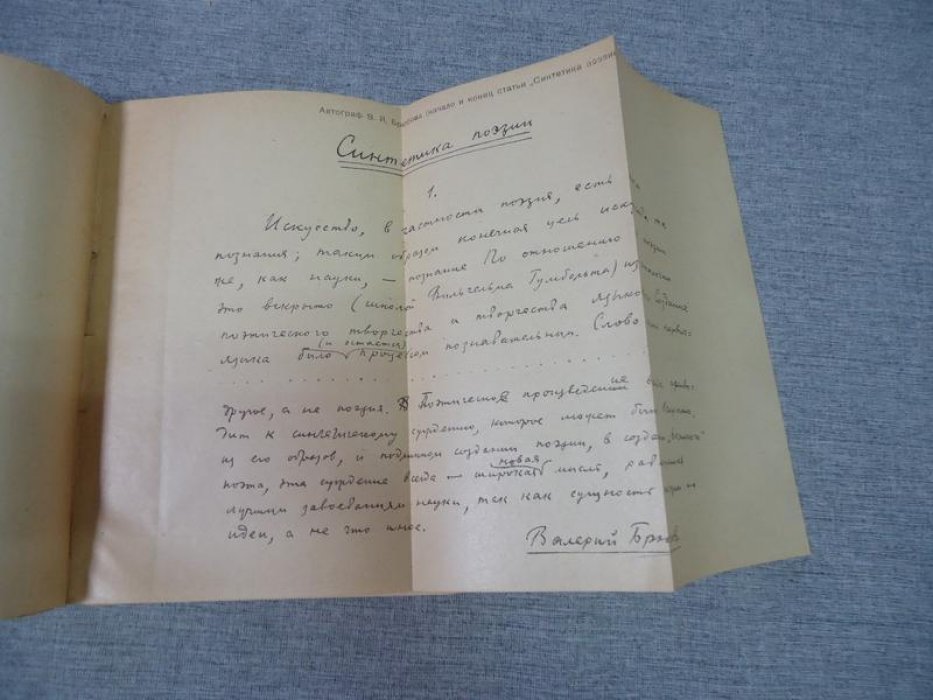 Автограф В. Я. Брюсова (начало и конец статьи „Синтетика поэзии
Синтетика поэзии
1.
Искусство, в частности поэзия, есть
познания; таким образом конечная цель иск та же
же, как науки, — познание По отношению поэзии
это вскрыто (школой Вильгельма Гумбольта)
поэтического творчества и творчества языка
языка было (и остается) процессом познавательным. Слово перво-
другое, а не поэзия. Поэтическое произведение
дит к синтетическому суждению, которое может быть
из его образов, и подлинном создании поэзии, в создании
поэта, эта суждение всегда — новая широкая мысль, равная
лучшим завоеваниям науки, так как сущность
идеи, а не что иное.
Валерий Брюс